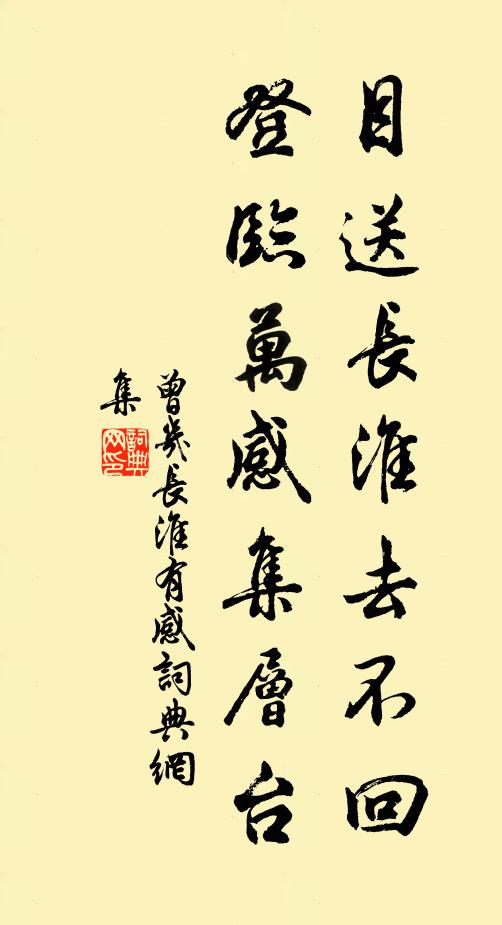 目送長淮去不回
登臨萬感集層台
曾幾長淮有感詞典網
集
詞典
网印